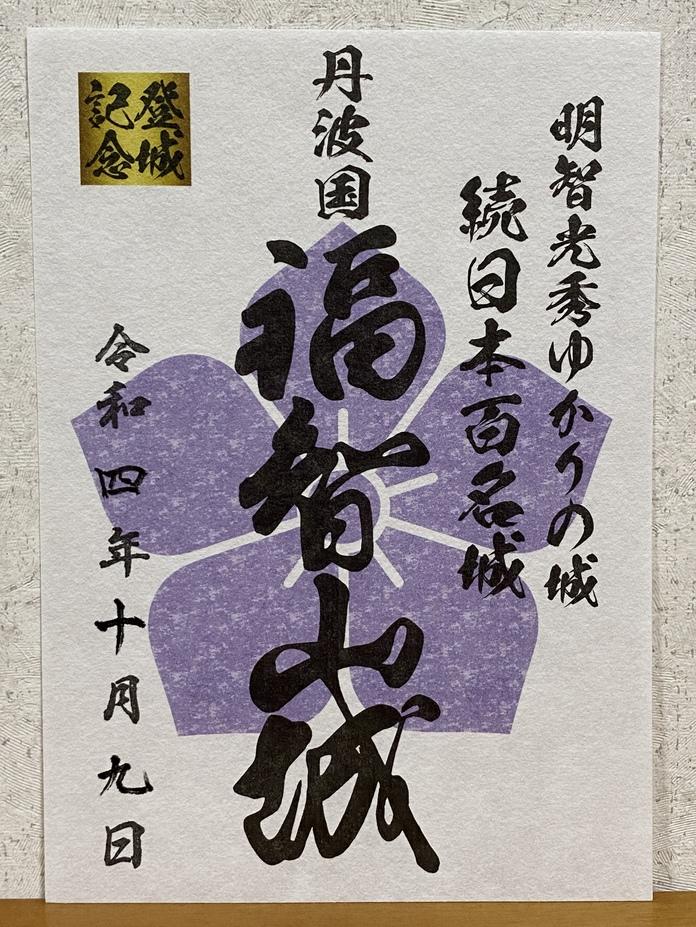 明智光秀ゆかりの城
続日本百名城
丹波国
福智山城
登城
記念
令和四年十月九日